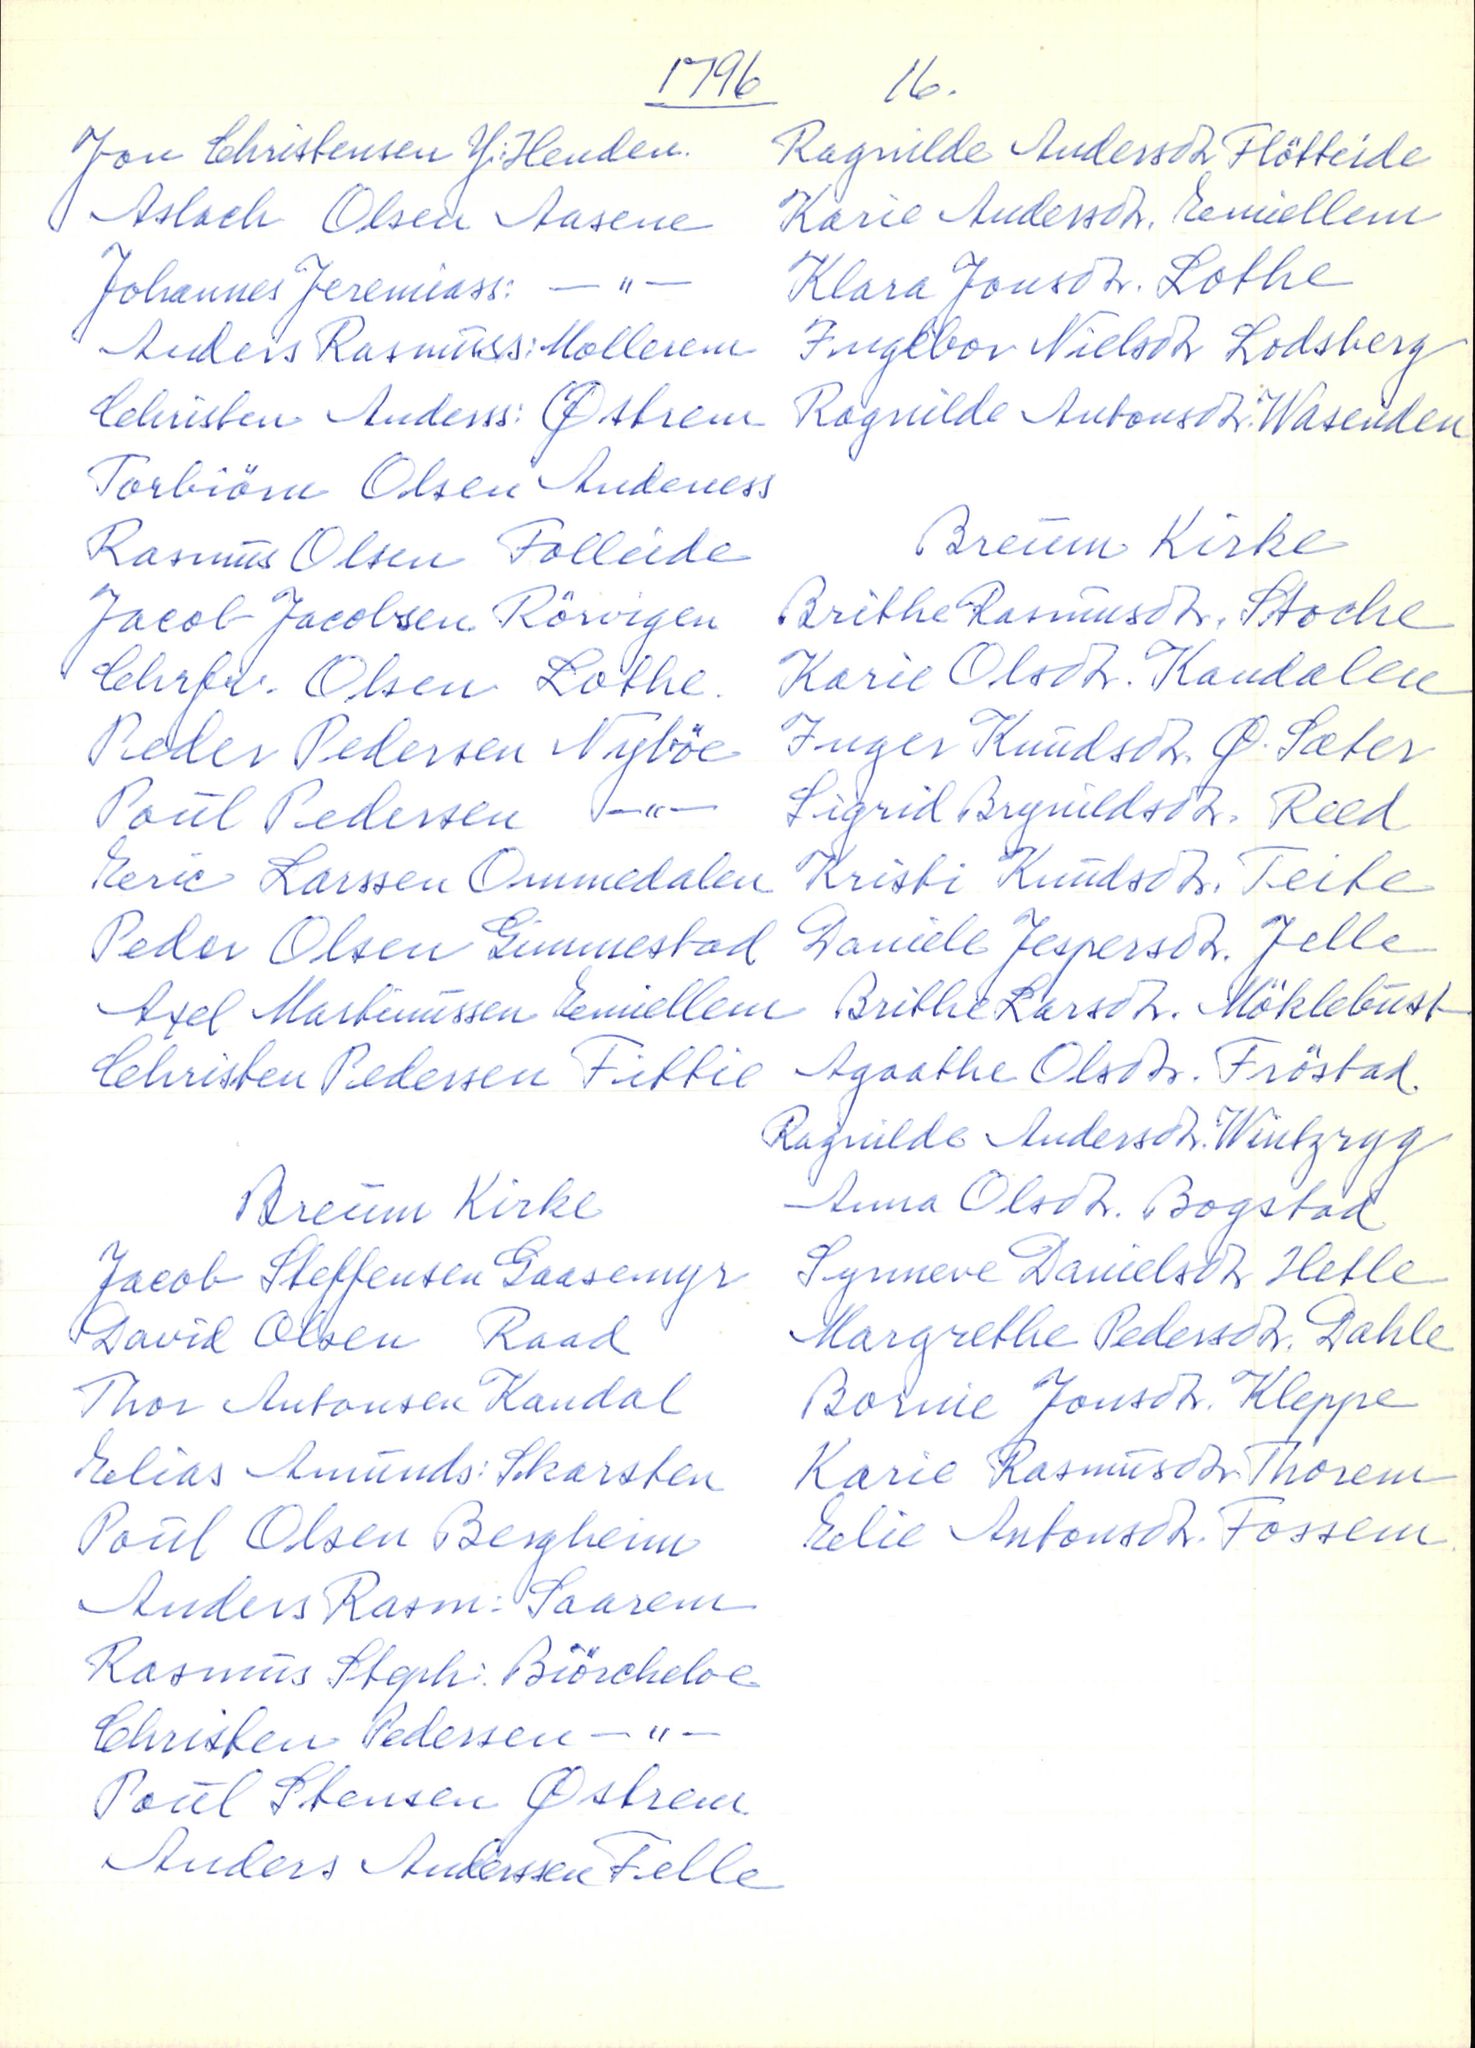 1796 16.
Jon Christensen Y: Henden.
Aslach Olsen Aasene
Johannes Jeremiass: —"—
Anders Rasmuss: Mollerem
Christen Anderss: Østrem
Torbiörn Olsen Andeness
Rasmus Olsen Folleide
Jacob Jacobsen Rörvigen
Chrfr. Olsen Lothe.
Peder Pedersen Nyböe
Poul Pedersen —"—
Eric Larssen Ommedalen
Peder Olsen Gimmestad
Axel Martinussen Emiellem
Christen Pedersen Fittie
Breum Kirke
Jacob Steffensen Gaasemyr
David Olsen Raad
Thor Antonsen Kandal
Elias Amunds: Skarsten
Poul Olsen Bergheim
Anders Rasm: Saarem
Rasmus Steph: Biörcheloe
Christen Pedersen —"—
Poul Stensen Østrem
Anders Anderssen Felle
Ragnilde Andersdtr. Flötteide
Karie Andersdtr. Emiellem
Klara Jonsdtr. Lothe
Ingebor Nielsdtr Lodsberg
Ragnilde Antonsdtr. Wasenden
Breum Kirke
Brithe Rasmusdtr. Stoche
Karie Olsdtr. Kandalen
Inger Knudsdtr. Ø. Sæter
Sigrid Brynildsdtr. Reed
Kristi Knudsdtr. Teite
Daniele Jespersdtr. Jelle
Brithe Larsdtr. Möklebust
Agaathe Olsdtr. Fröstad
Ragnilde Andersdtr. Wintzryg
Anna Olsdtr. Bogstad
Synneve Danielsdtr Hetle
Margrethe Pedersdtr. Dahle
Bornie Jonsdtr. Kleppe
Karie Rasmusdtr. Thorem
Elie Antonsdtr. Fossem.